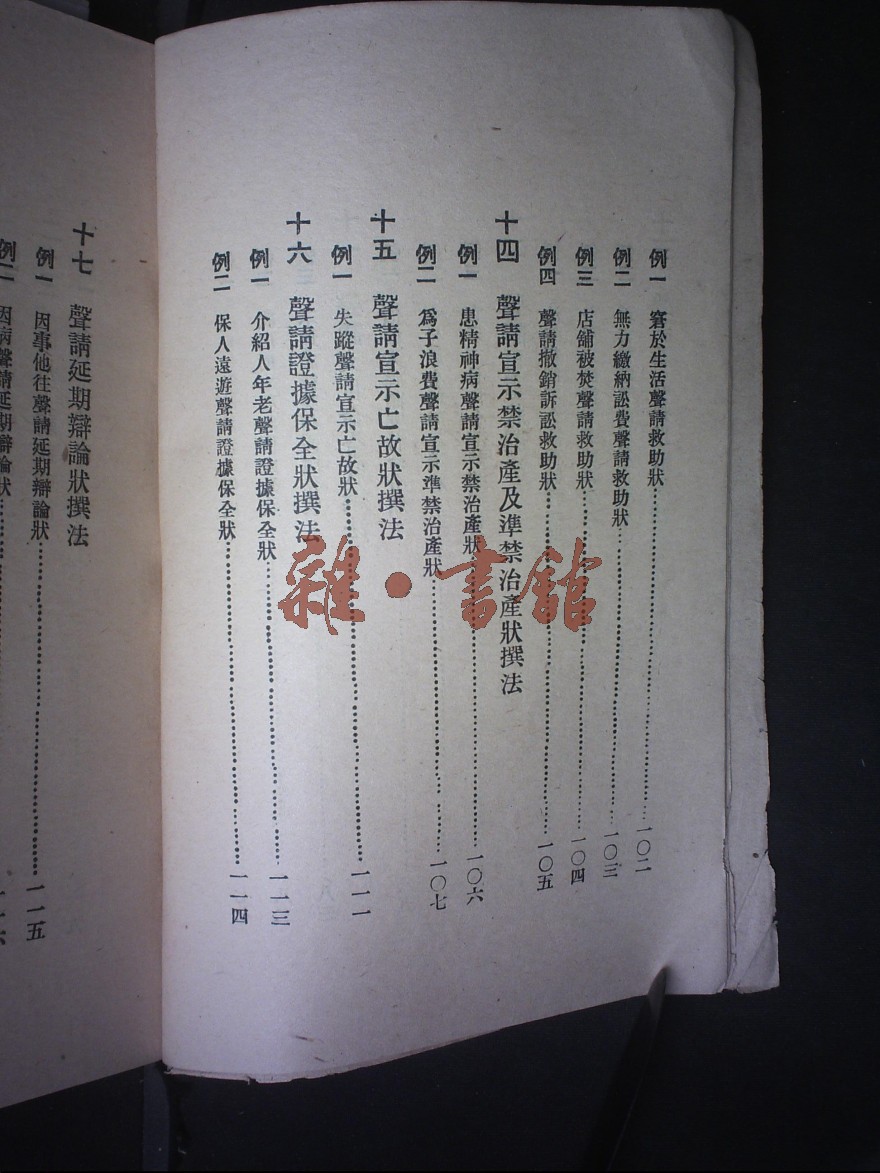 例一　窘於生活聲請救助狀……一〇二
例二　無力繳納訟費聲請救助狀……一〇三
例三　店舖被焚聲請救助狀……一〇四
例四　聲請撤銷訴訟救助狀……一〇五
十四　聲請宣示禁治產及準禁治產狀撰法
例一　患精神病聲請宣示禁治產狀……一〇六
例二　爲子浪費聲請宣示準禁治產狀……一〇七
十五　聲請宣示亡故狀撰法
例一　失蹤聲請宣示亡故狀……一一一
十六　聲請證據保全狀撰法
例一　介紹人年老聲請證據保全狀……一一三
例二　保人遠遊聲請證據保全狀……一一四
十七　聲請延期辯論狀撰法
例一　因事他往聲請延期辯論狀……一一五
例二　因病聲請延期辯論狀……一一六
雜·書館